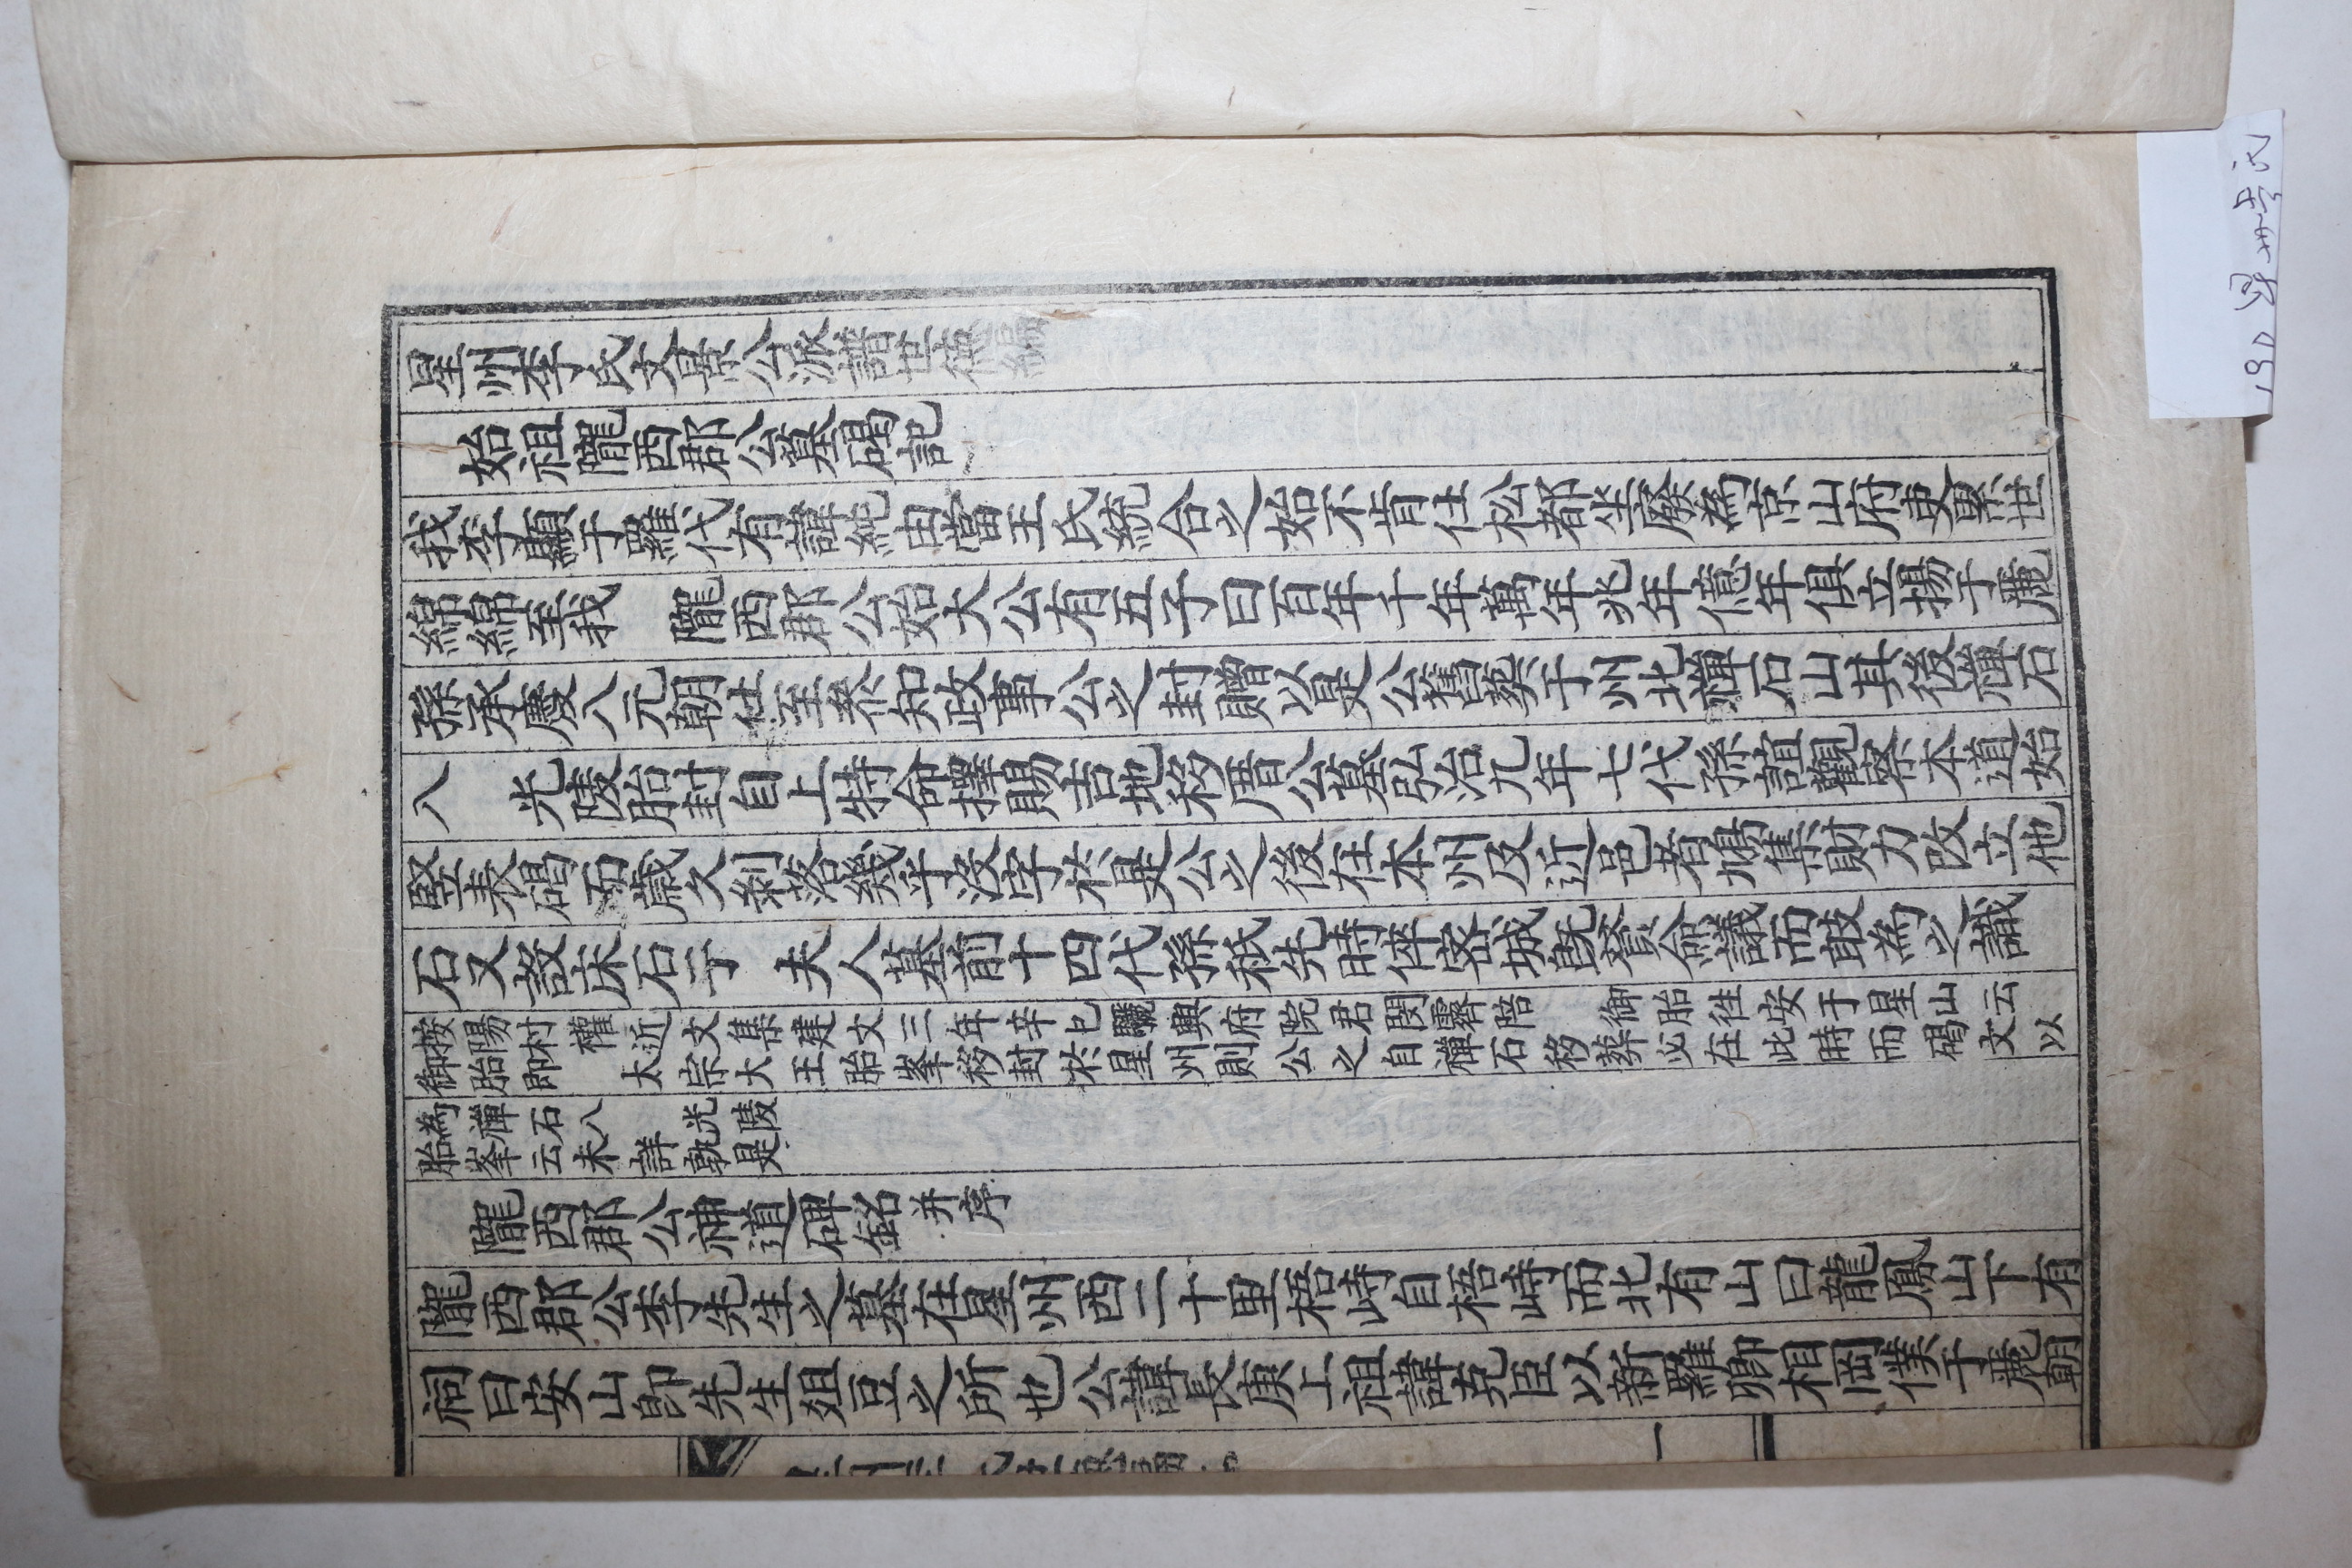 星州李氏文景公派譜世德編
始祖隴西郡公墓碣記
我李顯于羅代有諱純由當王氏統合之始不肯仕松都坐廢為京山府吏累世
綿綿至我 隴西郡公始大公有五子曰百年千年萬年兆年億年俱立揚于麗
孫承慶入元朝仕至叅知政事公之封贈以是公舊葬于州北禪石山其後禪石
入 光陵胎封自上特命擇賜吉地移厝公墓弘治九年七代孫誼觀察本道始
竪表碣而歲久剝落幾乎沒字於是公之後在本州及近邑者鳩集財力改立他
石又設床石于 夫人墓前十四代孫秖先時倅密城旣賛僉議而敊為之識
按陽村權近文集建文三年辛巳驪興府院君閔霽陪 御胎徃安于星山云
御胎即 太宗大王胎峯移封於星州則公之自禪石移葬必在此時而碣文以
為禪石入 光陵
胎峯云未詳孰是
隴西郡公神道碑銘 并序
隴西郡公李先生之墓在星州西二十里梧峙自梧峙而北有山曰龍鳳山下有
祠曰安山卽先生俎豆之所也公諱長庚上祖諱克臣以新羅卿相罔僕于麗朝
一
190 星州李氏